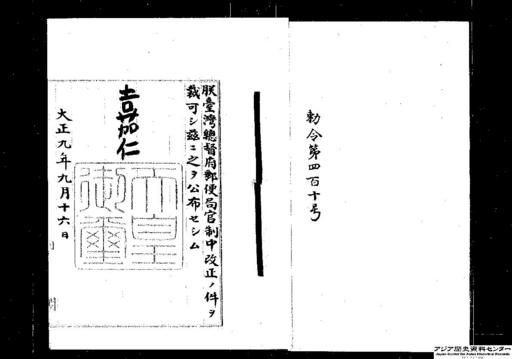 勅令第四百十号
朕臺灣總督府郵便局官制中改正ノ件ヲ
裁可シ茲ニ之ヲ公布セシム
嘉仁
天皇
御璽
大正九年九月十六日
アジア歴史資料センター
Japan Center for Asian Historical Records